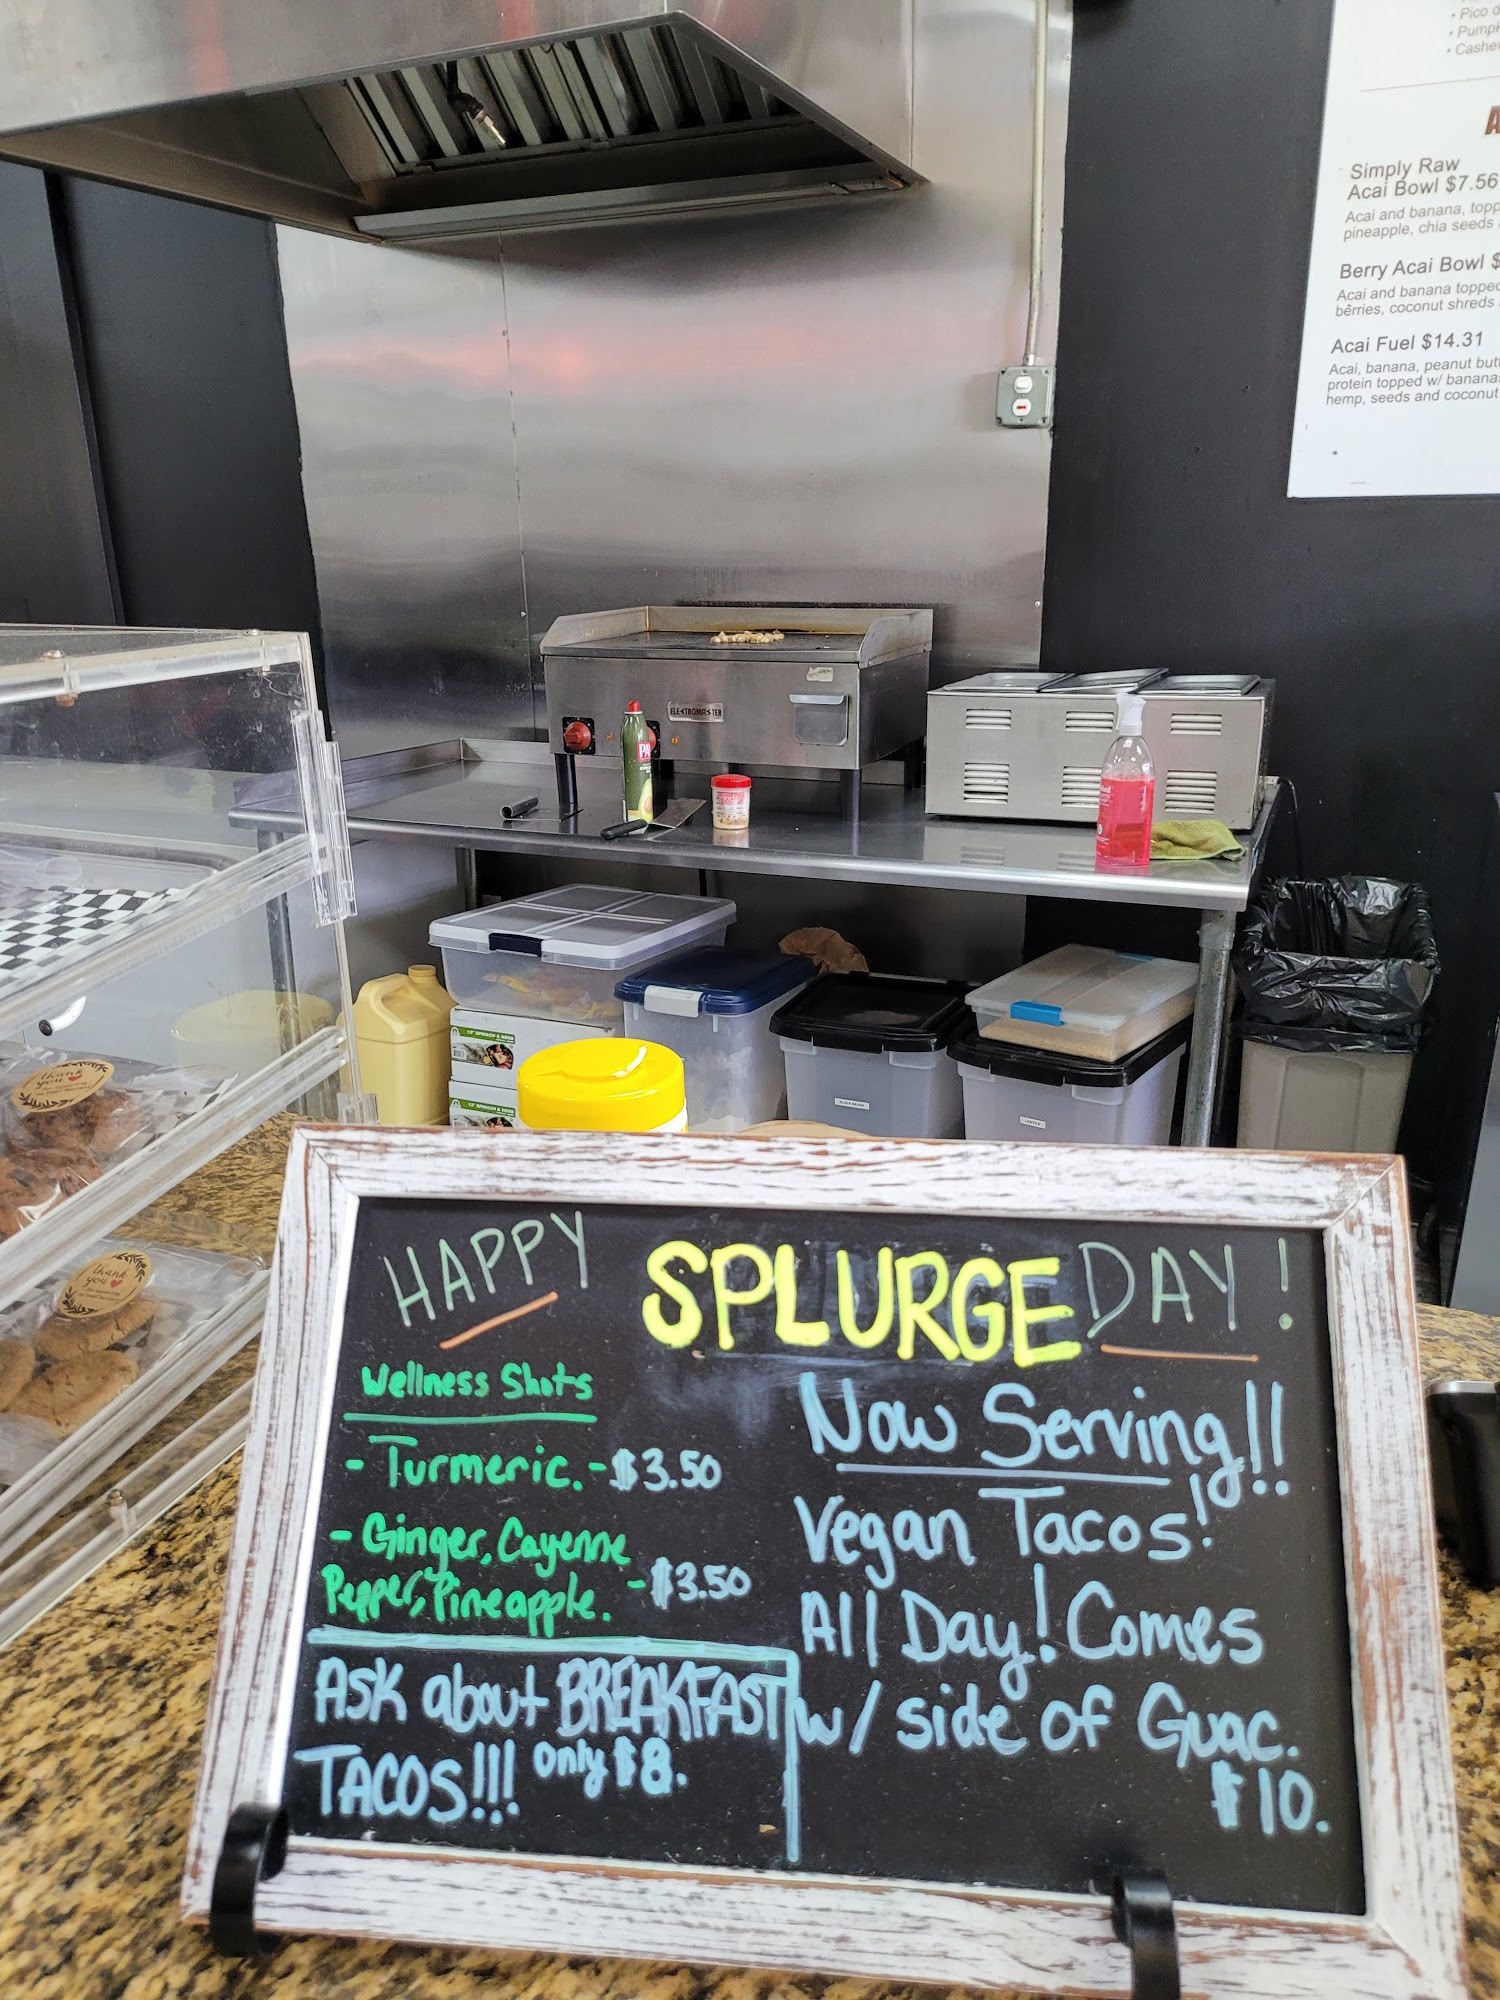 • Pico d
• Pumpk
• Cashe
A
Simply Raw
Acai Bowl $7.56
Acai and banana, topp
pineapple, chia seeds
Berry Acai Bowl $
Acai and banana topped
berries, coconut shreds
Acai Fuel $14.31
Acai, banana, peanut butt
protein topped w/ bananas
hemp, seeds and coconut
ELECTROMASTER
PA
12" SPINACH & HERB
12" SPINACH & HERB
BLACK BEANS
LENTILS
thank
you
thank
you
HAPPY SPLURGE DAY!
Wellness Shots
- Turmeric. - $3.50
- Ginger, Cayenne
Pepper, Pineapple. - $3.50
Ask about BREAKFAST
TACOS!!! only $8.
Now Serving!!
Vegan Tacos!
All Day! Comes
w/ side of Guac.
$10.